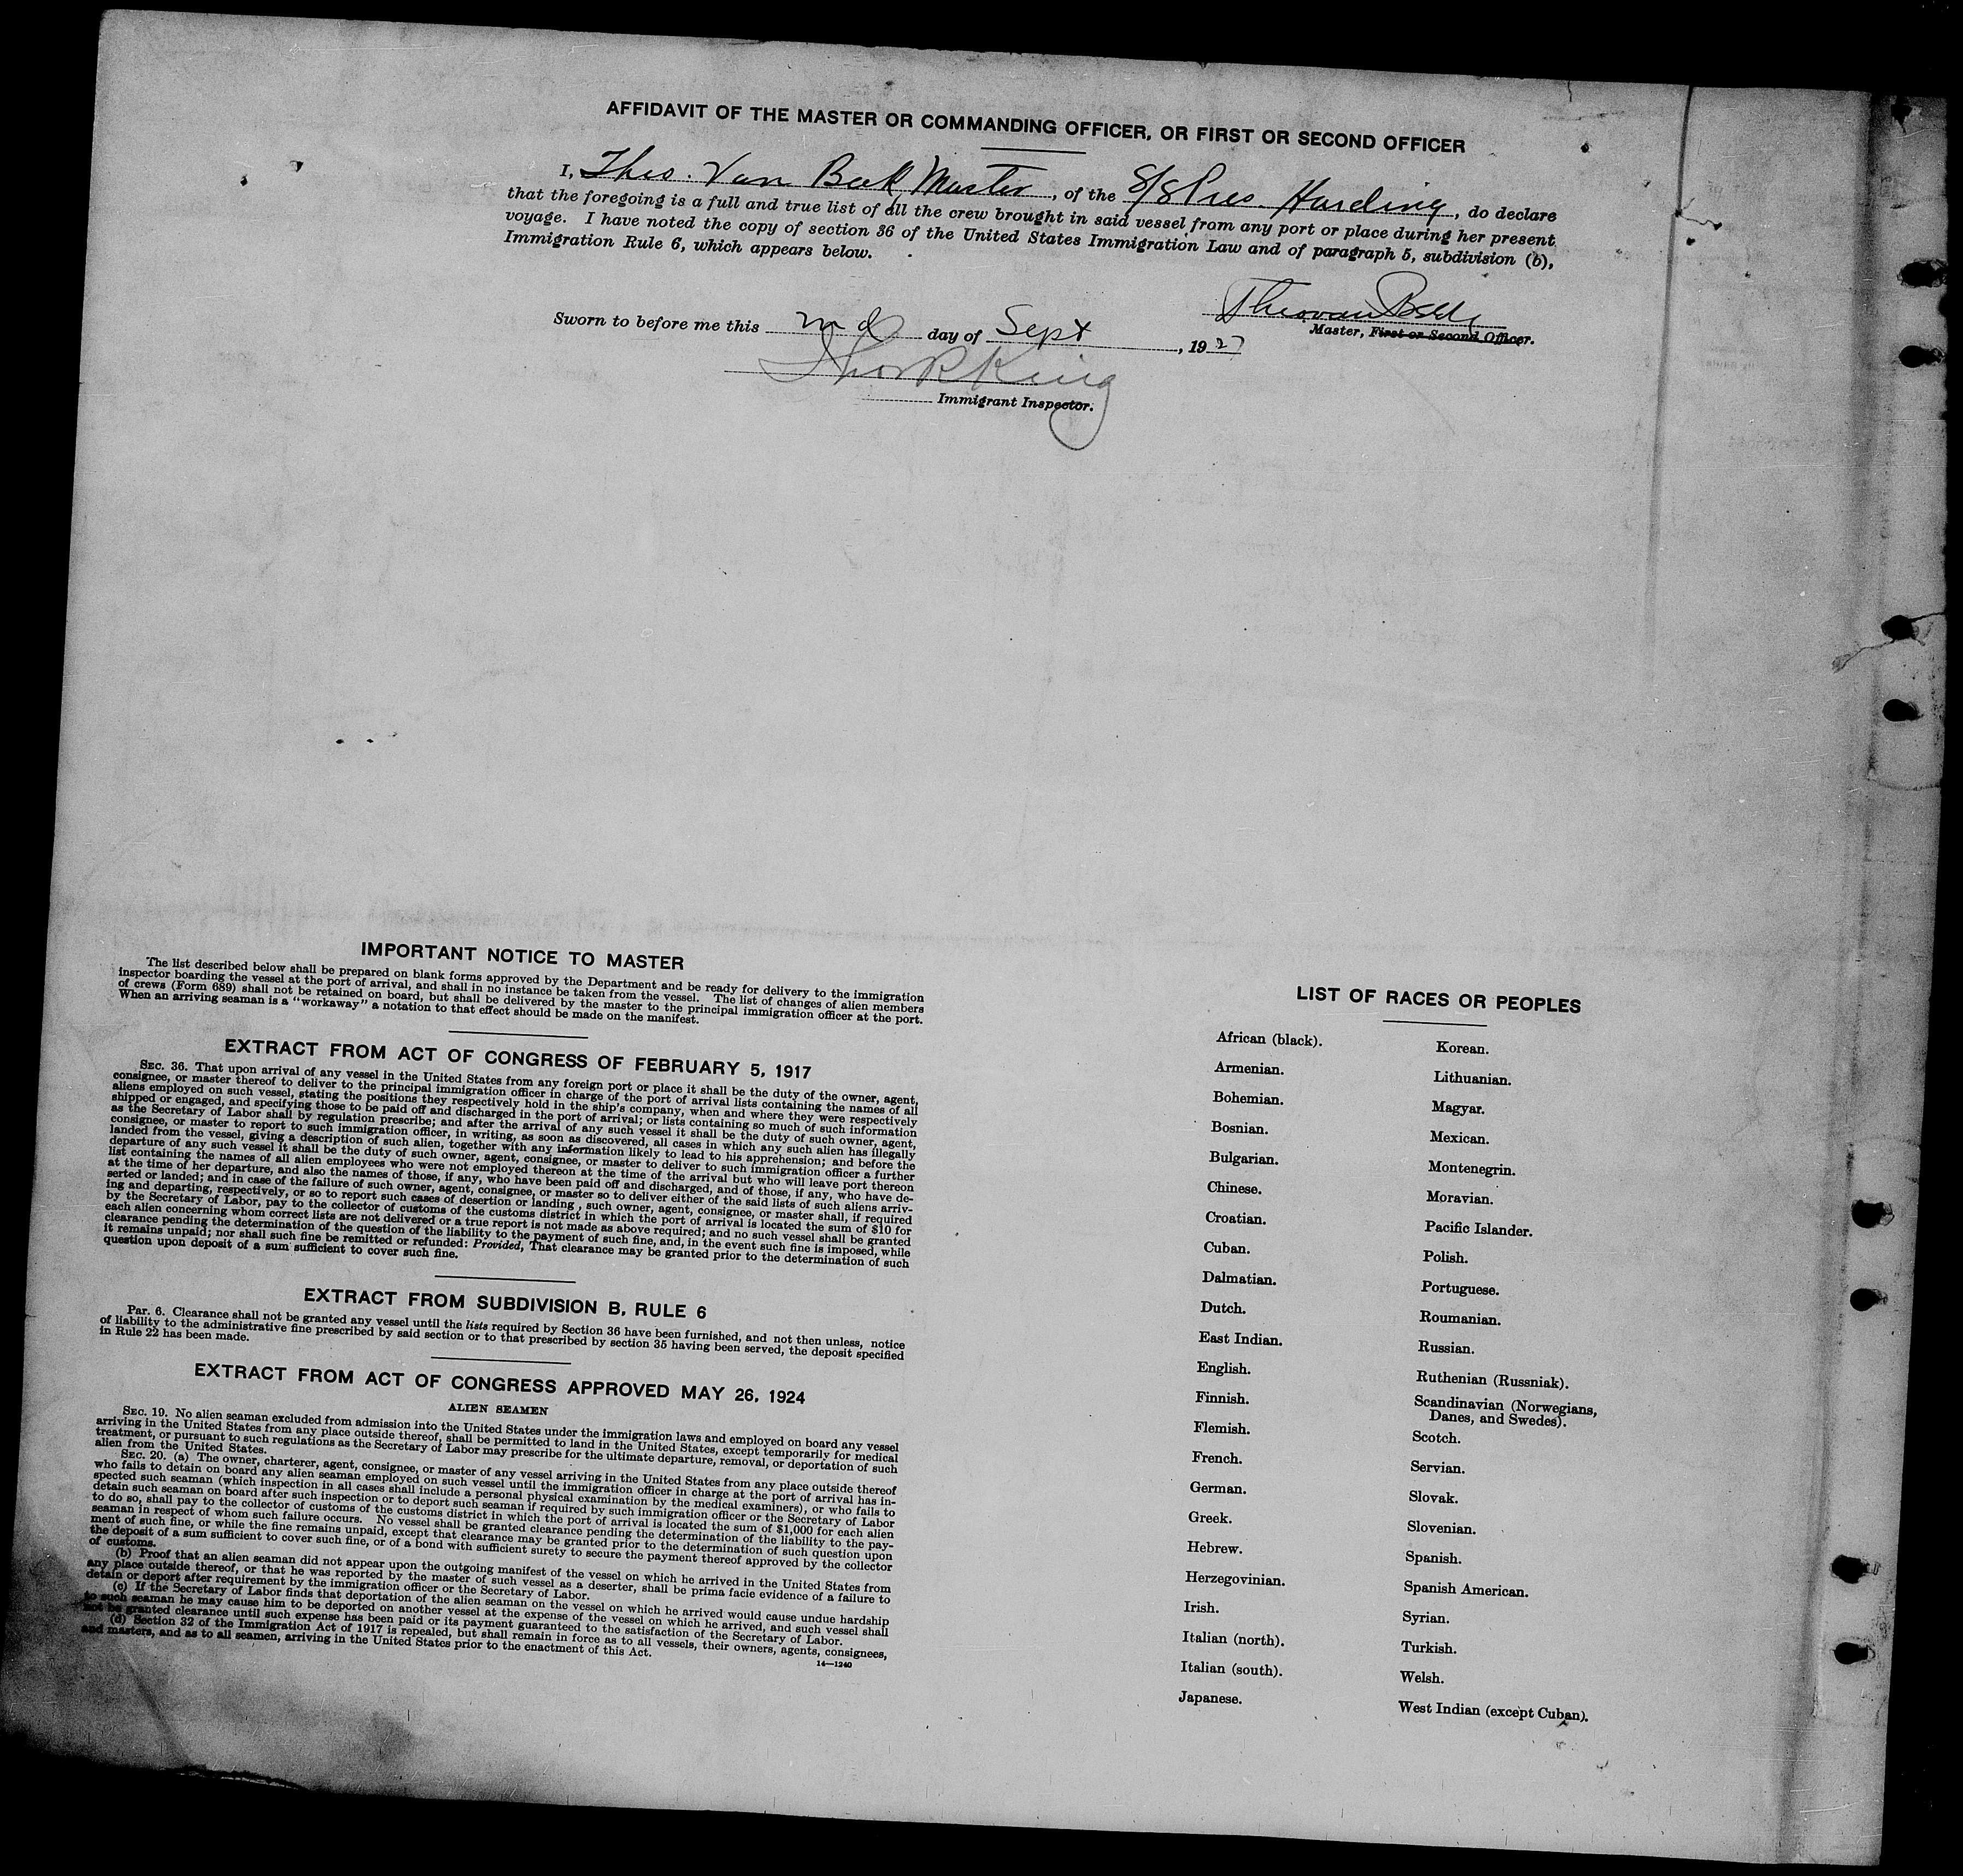 AFFIDAVIT OF THE MASTER OR COMMANDING OFFICER, OR FIRST OR SECOND OFFICER
I, Thos. Van Beek Master, of the S/S Pres. Harding, do declare
that the foregoing is a full and true list of all the crew brought in said vessel from any port or place during her present
voyage. I have noted the copy of section 36 of the United States Immigration Law and of paragraph 5, subdivision (b),
Immigration Rule 6, which appears below.
Master, First or Second Officer.
Sworn to before me this day of Sept, 1927
King
Immigrant Inspector.
IMPORTANT NOTICE TO MASTER
The list described below shall be prepared on blank forms approved by the Department and be ready for delivery to the immigration
inspector boarding the vessel at the port of arrival, and shall in no instance be taken from the vessel. The list of changes of alien members
of crews (Form 689) shall not be retained on board, but shall be delivered by the master to the principal immigration officer at the port.
When an arriving seaman is a "workaway" a notation to that effect should be made on the manifest.
EXTRACT FROM ACT OF CONGRESS OF FEBRUARY 5, 1917
SEC. 36. That upon arrival of any vessel in the United States from any foreign port or place it shall be the duty of the owner, agent,
consignee, or master thereof to deliver to the principal immigration officer in charge of the port of arrival lists containing the names of all
aliens employed on such vessel, stating the positions they respectively hold in the ship's company, when and where they were respectively
shipped or engaged, and specifying those to be paid off and discharged in the port of arrival; or lists containing so much of such information
as the Secretary of Labor shall by regulation prescribe; and after the arrival of any such vessel it shall be the duty of such owner, agent,
consignee, or master to report to such immigration officer, in writing, as soon as discovered, all cases in which any such alien has illegally
landed from the vessel, giving a description of such alien, together with any information likely to lead to his apprehension; and before the
departure of any such vessel it shall be the duty of such owner, agent, consignee, or master to deliver to such immigration officer a further
list containing the names of all alien employees who were not employed thereon at the time of the arrival but who will leave port thereon
at the time of her departure, and also the names of those, if any, who have been paid off and discharged, and of those, if any, who have de-
serted or landed; and in case of the failure of such owner, agent, consignee, or master so to deliver either of the said lists of such aliens arriv-
ing and departing, respectively, or so to report such cases of desertion or landing , such owner, agent, consignee, or master shall, if required
by the Secretary of Labor, pay to the collector of customs of the customs district in which the port of arrival is located the sum of $10 for
each alien concerning whom correct lists are not delivered or a true report is not made as above required; and no such vessel shall be granted
clearance pending the determination of the question of the liability to the payment of such fine, and, in the event such fine is imposed, while
it remains unpaid; nor shall such fine be remitted or refunded: Provided, That clearance may be granted prior to the determination of such
question upon deposit of a sum sufficient to cover such fine.
EXTRACT FROM SUBDIVISION B, RULE 6
Par. 6. Clearance shall not be granted any vessel until the lists required by Section 36 have been furnished, and not then unless, notice
of liability to the administrative fine prescribed by said section or to that prescribed by section 35 having been served, the deposit specified
in Rule 22 has been made.
EXTRACT FROM ACT OF CONGRESS APPROVED MAY 26, 1924
ALIEN SEAMEN
SEC. 19. No alien seaman excluded from admission into the United States under the immigration laws and employed on board any vessel
arriving in the United States from any place outside thereof, shall be permitted to land in the United States, except temporarily for medical
treatment, or pursuant to such regulations as the Secretary of Labor may prescribe for the ultimate departure, removal, or deportation of such
alien from the United States.
SEC. 20. (a) The owner, charterer, agent, consignee, or master of any vessel arriving in the United States from any place outside thereof
who fails to detain on board any alien seaman employed on such vessel until the immigration officer in charge at the port of arrival has in-
spected such seaman (which inspection in all cases shall include a personal physical examination by the medical examiners), or who fails to
detain such seaman on board after such inspection or to deport such seaman if required by such immigration officer or the Secretary of Labor
to do so, shall pay to the collector of customs of the customs district in which the port of arrival is located the sum of $1,000 for each alien
seaman in respect of whom such failure occurs. No vessel shall be granted clearance pending the determination of the liability to the pay-
ment of such fine, or while the fine remains unpaid, except that clearance may be granted prior to the determination of such question upon
the deposit of a sum sufficient to cover such fine, or of a bond with sufficient surety to secure the payment thereof approved by the collector
of customs.
(b) Proof that an alien seaman did not appear upon the outgoing manifest of the vessel on which he arrived in the United States from
any place outside thereof, or that he was reported by the master of such vessel as a deserter, shall be prima facie evidence of a failure to
detain or deport after requirement by the immigration officer or the Secretary of Labor.
(c) If the Secretary of Labor finds that deportation of the alien seaman on the vessel on which he arrived would cause undue hardship
to such seaman he may cause him to be deported on another vessel at the expense of the vessel on which he arrived, and such vessel shall
not be granted clearance until such expense has been paid or its payment guaranteed to the satisfaction of the Secretary of Labor.
(d) Section 32 of the Immigration Act of 1917 is repealed, but shall remain in force as to all vessels, their owners, agents, consignees,
and masters, and as to all seamen, arriving in the United States prior to the enactment of this Act.
14—1240
LIST OF RACES OR PEOPLES
African (black).
Armenian.
Bohemian.
Bosnian.
Bulgarian.
Chinese.
Croatian.
Cuban.
Dalmatian.
Dutch.
East Indian.
English.
Finnish.
Flemish.
French.
German.
Greek.
Hebrew.
Herzegovinian.
Irish.
Italian (north).
Italian (south).
Japanese.
Korean.
Lithuanian.
Magyar.
Mexican.
Montenegrin.
Moravian.
Pacific Islander.
Polish.
Portuguese.
Roumanian.
Russian.
Ruthenian (Russniak).
Scandinavian (Norwegians,
Danes, and Swedes).
Scotch.
Servian.
Slovak.
Slovenian.
Spanish.
Spanish American.
Syrian.
Turkish.
Welsh.
West Indian (except Cuban).